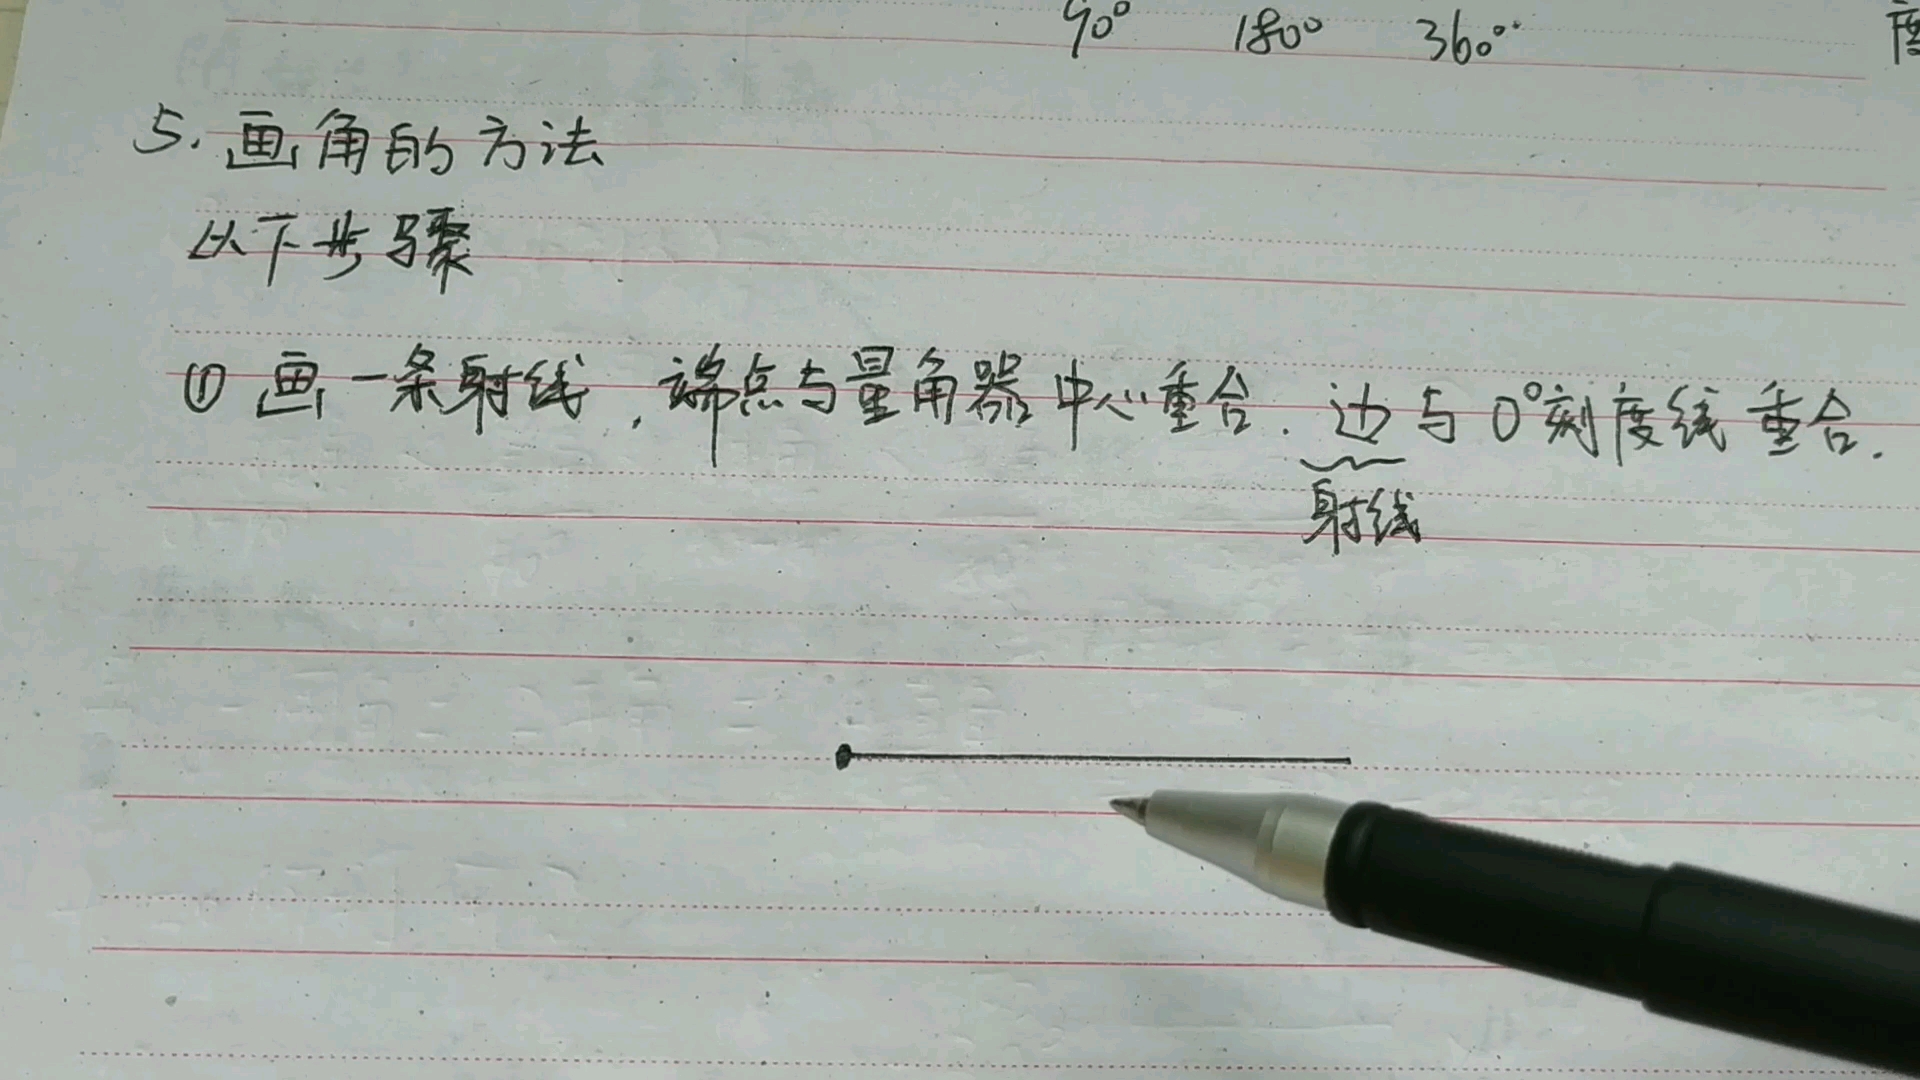 90° 180° 360°
5. 画角的方法
以下步骤
① 画一条射线，端点与量角器中心重合．边与0°刻度线重合．
射线